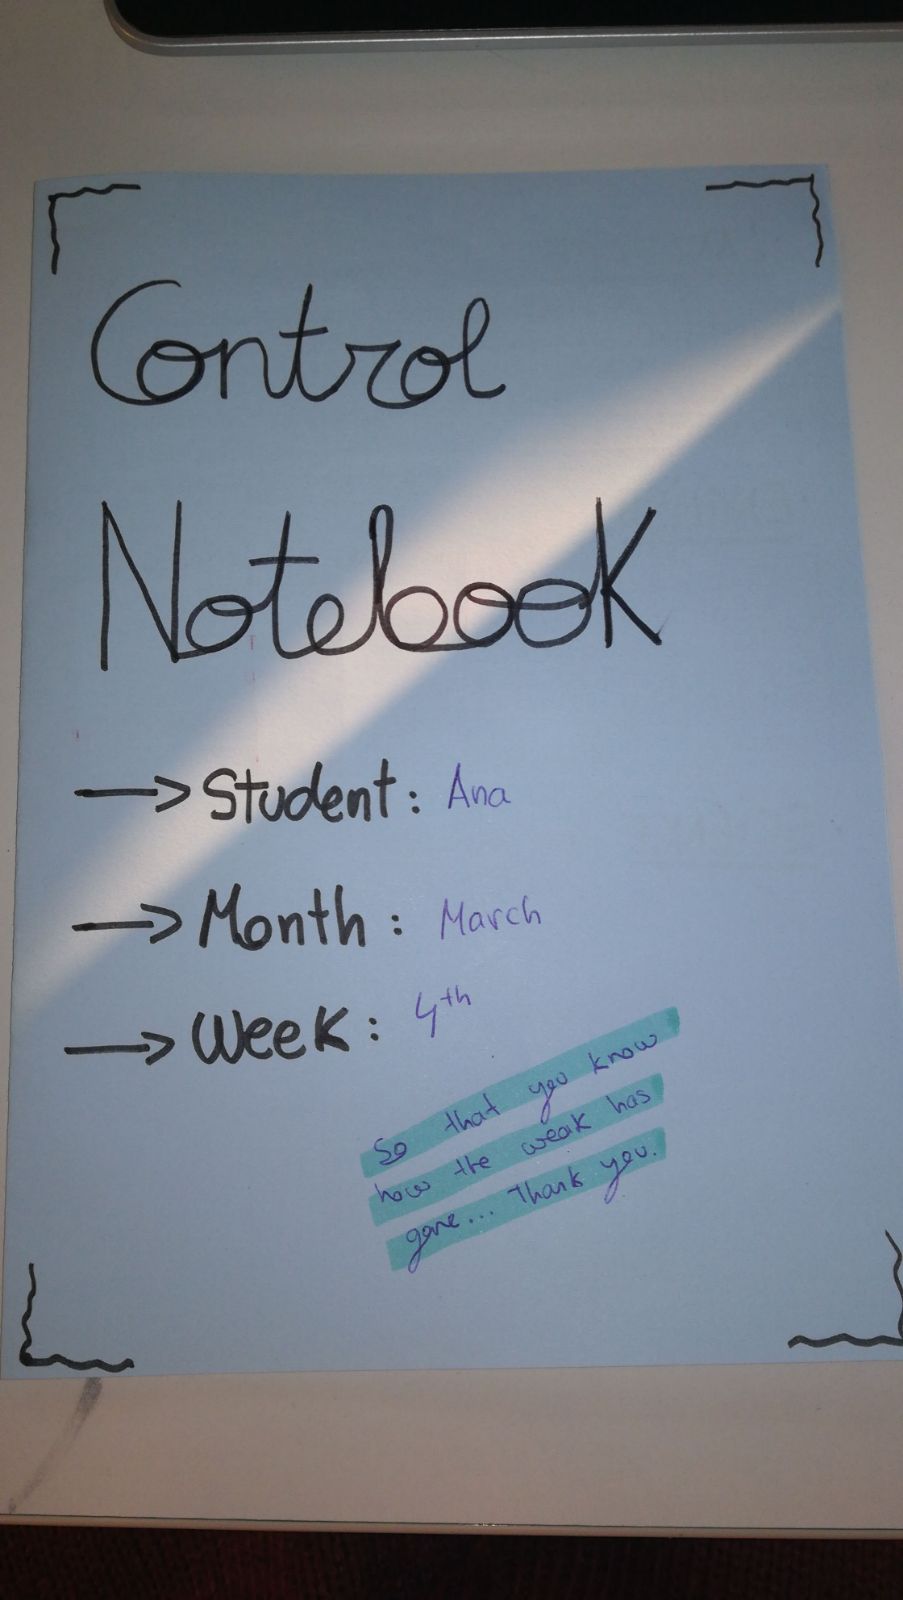 Control
Notebook
→ Student: Ana
→ Month: March
→ Week: 4th
So that you know
how the weak has
gone... Thank you.